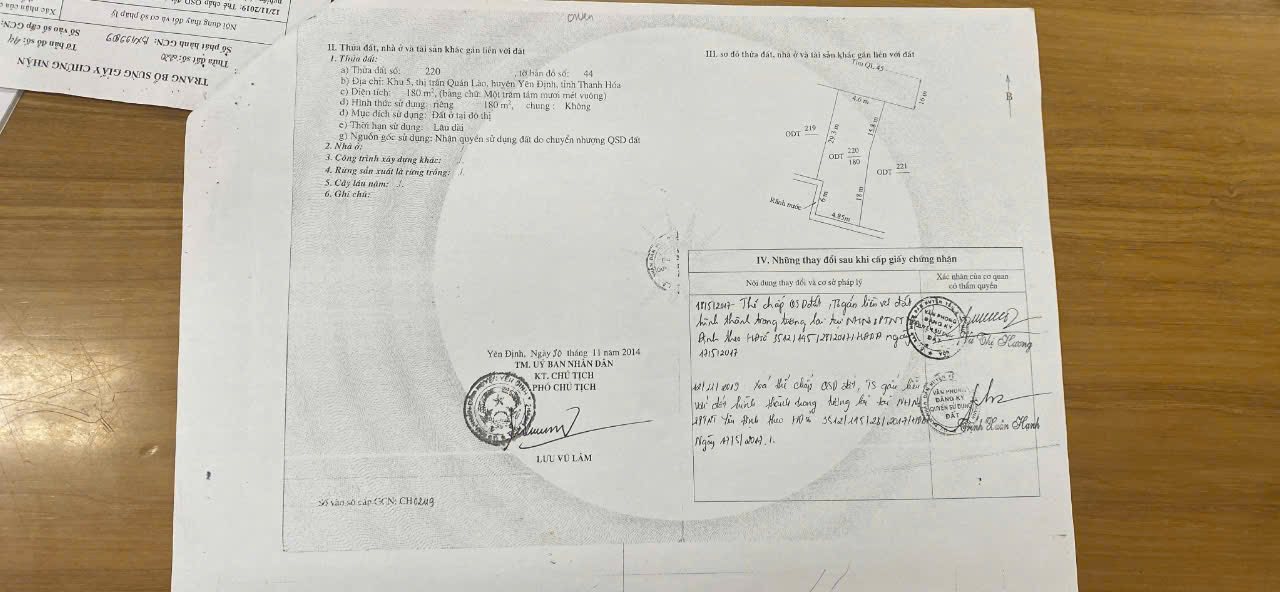 II. Thửa đất, nhà ở và tài sản khác gắn liền với đất
1. Thửa đất:
a) Thửa đất số: 220 , tờ bản đồ số: 44
b) Địa chỉ: Khu 5, thị trấn Quán Lào, huyện Yên Định, tỉnh Thanh Hóa
c) Diện tích: 180 m², (bằng chữ: Một trăm tám mươi mét vuông)
d) Hình thức sử dụng: riêng 180 m², chung : Không
đ) Mục đích sử dụng: Đất ở tại đô thị
e) Thời hạn sử dụng: Lâu dài
g) Nguồn gốc sử dụng: Nhận quyền sử dụng đất do chuyển nhượng QSD đất
2. Nhà ở:
3. Công trình xây dựng khác: ./.
4. Rừng sản xuất là rừng trồng: ./.
5. Cây lâu năm: ./.
6. Ghi chú:
Yên Định, Ngày 10 tháng 11 năm 2014
TM. UỶ BAN NHÂN DÂN
KT. CHỦ TỊCH
PHÓ CHỦ TỊCH
LƯU VŨ LÂM
Số vào sổ cấp GCN: CH0249
III. sơ đồ thửa đất, nhà ở và tài sản khác gắn liền với đất
Tim QL 45
4.0 m
16 m
B
ODT 219
29.3 m
15.8 m
ODT 220
180
ODT 221
Rãnh nước
6 m
18 m
4.85m
IV. Những thay đổi sau khi cấp giấy chứng nhận
Nội dung thay đổi và cơ sở pháp lý
Xác nhận của cơ quan
có thẩm quyền
Thế chấp QSD đất, TS gắn liền với đất
hình thành trong tương lai tại NHNo&PTNT
Định theo HĐ số ngày
17/5/2017
Vũ Thị Hương
VĂN PHÒNG
ĐĂNG KÝ
QUYỀN SỬ DỤNG
ĐẤT
Xoá thế chấp QSD đất, TS gắn liền
với đất hình thành trong tương lai tại NHNo
Định theo HĐ số
Ngày 17/5/2017.
VĂN PHÒNG
ĐĂNG KÝ
QUYỀN SỬ DỤNG
ĐẤT
Trịnh Xuân Hạnh
TRANG BỔ SUNG GIẤY CHỨNG NHẬN
Thửa đất số: 220
Tờ bản đồ số: 44
Số phát hành GCN:
Số vào sổ cấp GCN:
Nội dung thay đổi và cơ sở pháp lý
12/11/2019: Thế chấp QSD